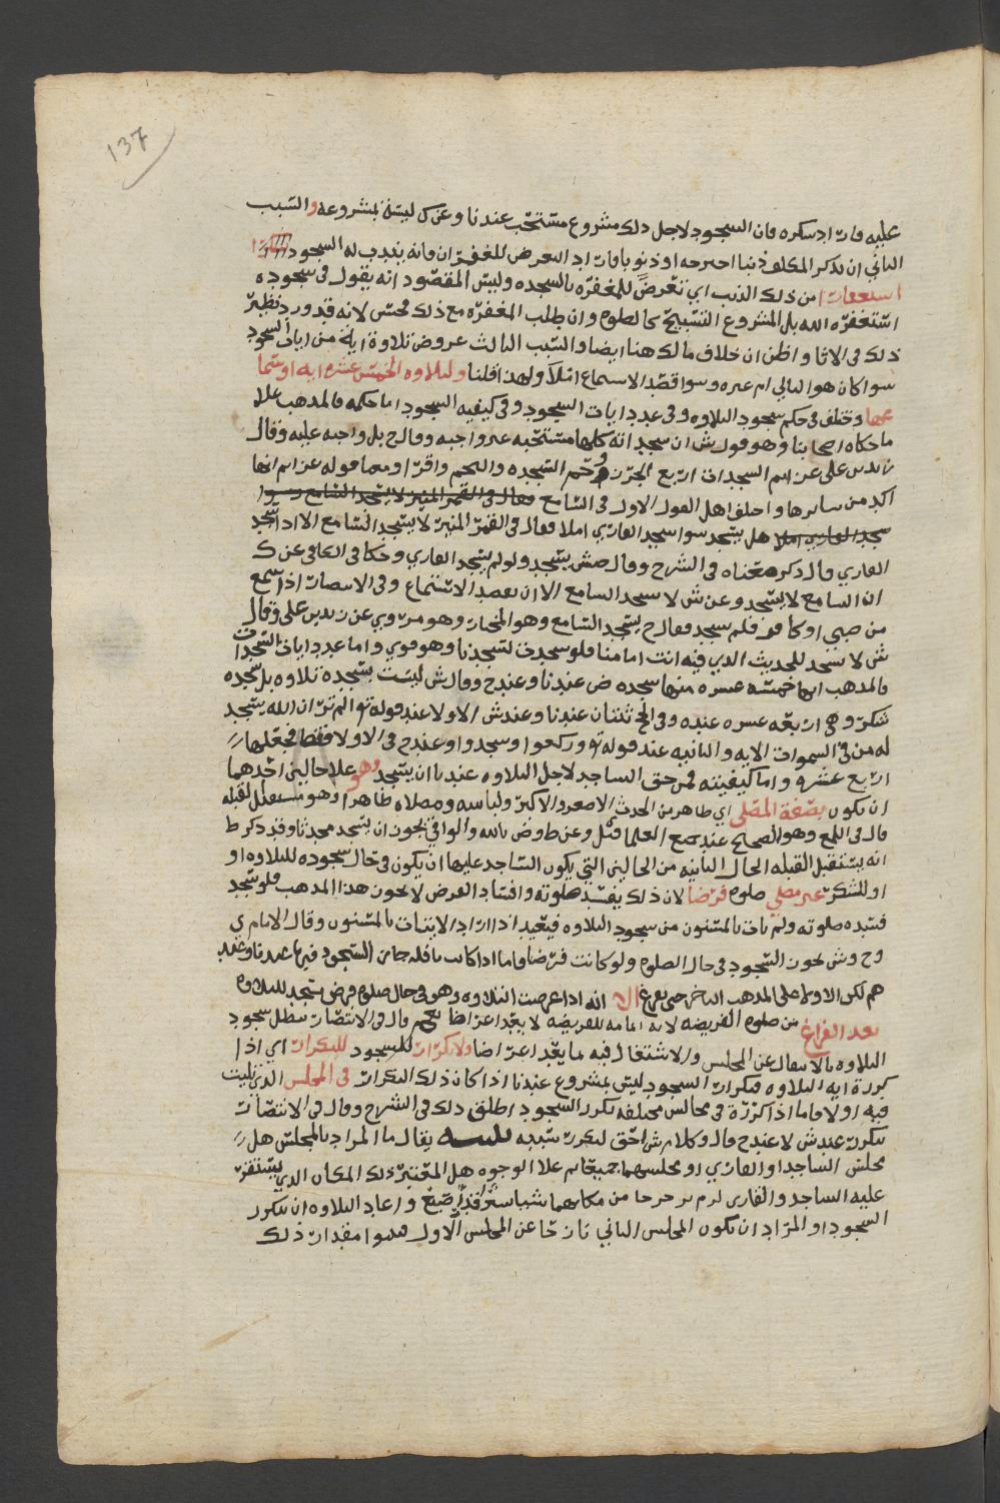 137
عليه فاراد شكره فان السجود لاجل ذلك مشروع مستحب عندنا وعن ك ليست بمشروعه والسبب
الثاني ان يذكر المكلف ذنبا اجترحه او ذنوبا فاراد التعرض للغفران فانه يندب له السجود
استغفارا من ذلك الذنب اي تعرضا للمغفره بالسجده وليس المقصود انه يقول في سجوده
استغفره الله بل المشروع التسبيح كالصلوه وان طلب المغفره مع ذلك فحسن لانه قد ورد نظير
ذلك في الاثار واظن ان خلاف مالك هنا ايضا والسبب الثالث عروض تلاوة ايه من ايات السجود
سوا كان هو التالي ام غيره وسوا قصد الاستماع ام لا ولهذا قلنا ولتلاوه الخمس عشره ايه او سماعها
وختلف في حكم سجود التلاوه وفي عدد ايات السجود وفي كيفيه السجود اما حكمه فالمذهب علا
ما حكاه اصحابنا وهو قول ش ان سجداته كلها مستحبه غير واجبه وقال ح بل واجبه عليه وقال
زيد بن علي عزايم السجدات اربع الجرز وحم السجده والنجم واقرا ومعنا قوله عزايم انها
اكد من سايرها واختلف اهل القول الاول في السامع
هل يسجد سوا سجد القاري ام لا فقال في القمر المنير لا يسجد السامع الا اذا سجد
القاري قال ذكر معناه في الشرح وقال ص ش يسجد ولو لم يسجد القاري وحكا في الكافي عن ك
ان السامع لا يسجد وعن ش لا يسجد السامع الا ان يقصد الاستماع وفي الانتصار اذا سمع
من صبي او كافر فلم يسجد فقال ح يسجد السامع وهو المختار وهو مروي عن زيد بن علي وقال
ش لا يسجد للحديث الذي فيه انت امامنا فلو سجدت لسجدنا وهو قوي واما عدد ايات السجدات
فالمذهب انها خمسه عشره منها سجده ص عندنا وعند ح وقال ش ليست بسجده تلاوه بل سجده
شكر وهي اربعه عشره عنده وفي الحج ثنتان عندنا وعند ش الاولا عند قوله تع الم تر ان الله يسجد
له من في السموات الايه والثانيه عند قوله تع اركعوا واسجدوا وعند ح في الاولا فقط فجعلها
اربع عشره واما كيفيته فمن حق الساجد لاجل التلاوه عندنا ان يسجد وهو علا حالين احدهما
ان يكون بصفة المصلي اي طاهر من الحدث الاصغر والاكبر ولباسه ومصلاه طاهرا وهو مستقبل القبله
قال في اللمع وهو الصحيح عند جميع العلما قيل وعن ط وض بالله والوافي يجوز ان يسجد محدثا وقد ذكر ط
انه يستقبل القبله الحال الثانيه من الحالين التي يكون الساجد عليها ان يكون في حال سجوده للتلاوه او
او للشكر غير مصلي صلوه فرضا لان ذلك يفسد صلوته وافساد الفرض لا يجوز هذا المذهب فلو سجد
فسده صلوته ولم يات بالمسنون من سجود التلاوه فيعيد اذا اراد الاتيان بالمسنون وقال الامام ي
وح وش يجوز السجود في حال الصلوه ولو كانت فرضا فاما اذا كانت نافله جاز السجود فيها عندنا وعند
هم لكن الاولا على المذهب التاخر حتى يفرغ الا انه اذا عرضت التلاوه وهو في حال صلوه فرض يسجد للتلاوه
بعد الفراغ من صلوه الفريضه لانه اتمامه للفريضه لا يعد اعراضا قال في الانتصار يبطل سجود
التلاوه بالانتقال عن المجلس والاشتغال فيه بما يعد اعراضا ولا تكرار للسجود للتكرار اي اذا
كررة ايه التلاوه فتكرار السجود ليس بمشروع عندنا اذا كان ذلك التكرار في المجلس الذي تليت
فيه اولا فاما اذا كررة في مجالس مختلفه تكرر السجود اطلق ذلك في الشرح وقال في الانتصار
يتكرر عند ش لا عند ح قال وكلام ش احق لتكرر سببه تنبيه يقال ما المراد بالمجلس هل
مجلس الساجد او القاري او مجلسهما جميعا علا الوجوه هل المعتبر ذلك المكان الذي يستقر
عليه الساجد والقارى لزم لو خرجا من مكانهما شيا يسيرا قدر اصبع واعاد التلاوه ان يتكرر
السجود او المراد ان يكون المجلس الثاني نازحا عن المجلس الاول فما مقدار ذلك